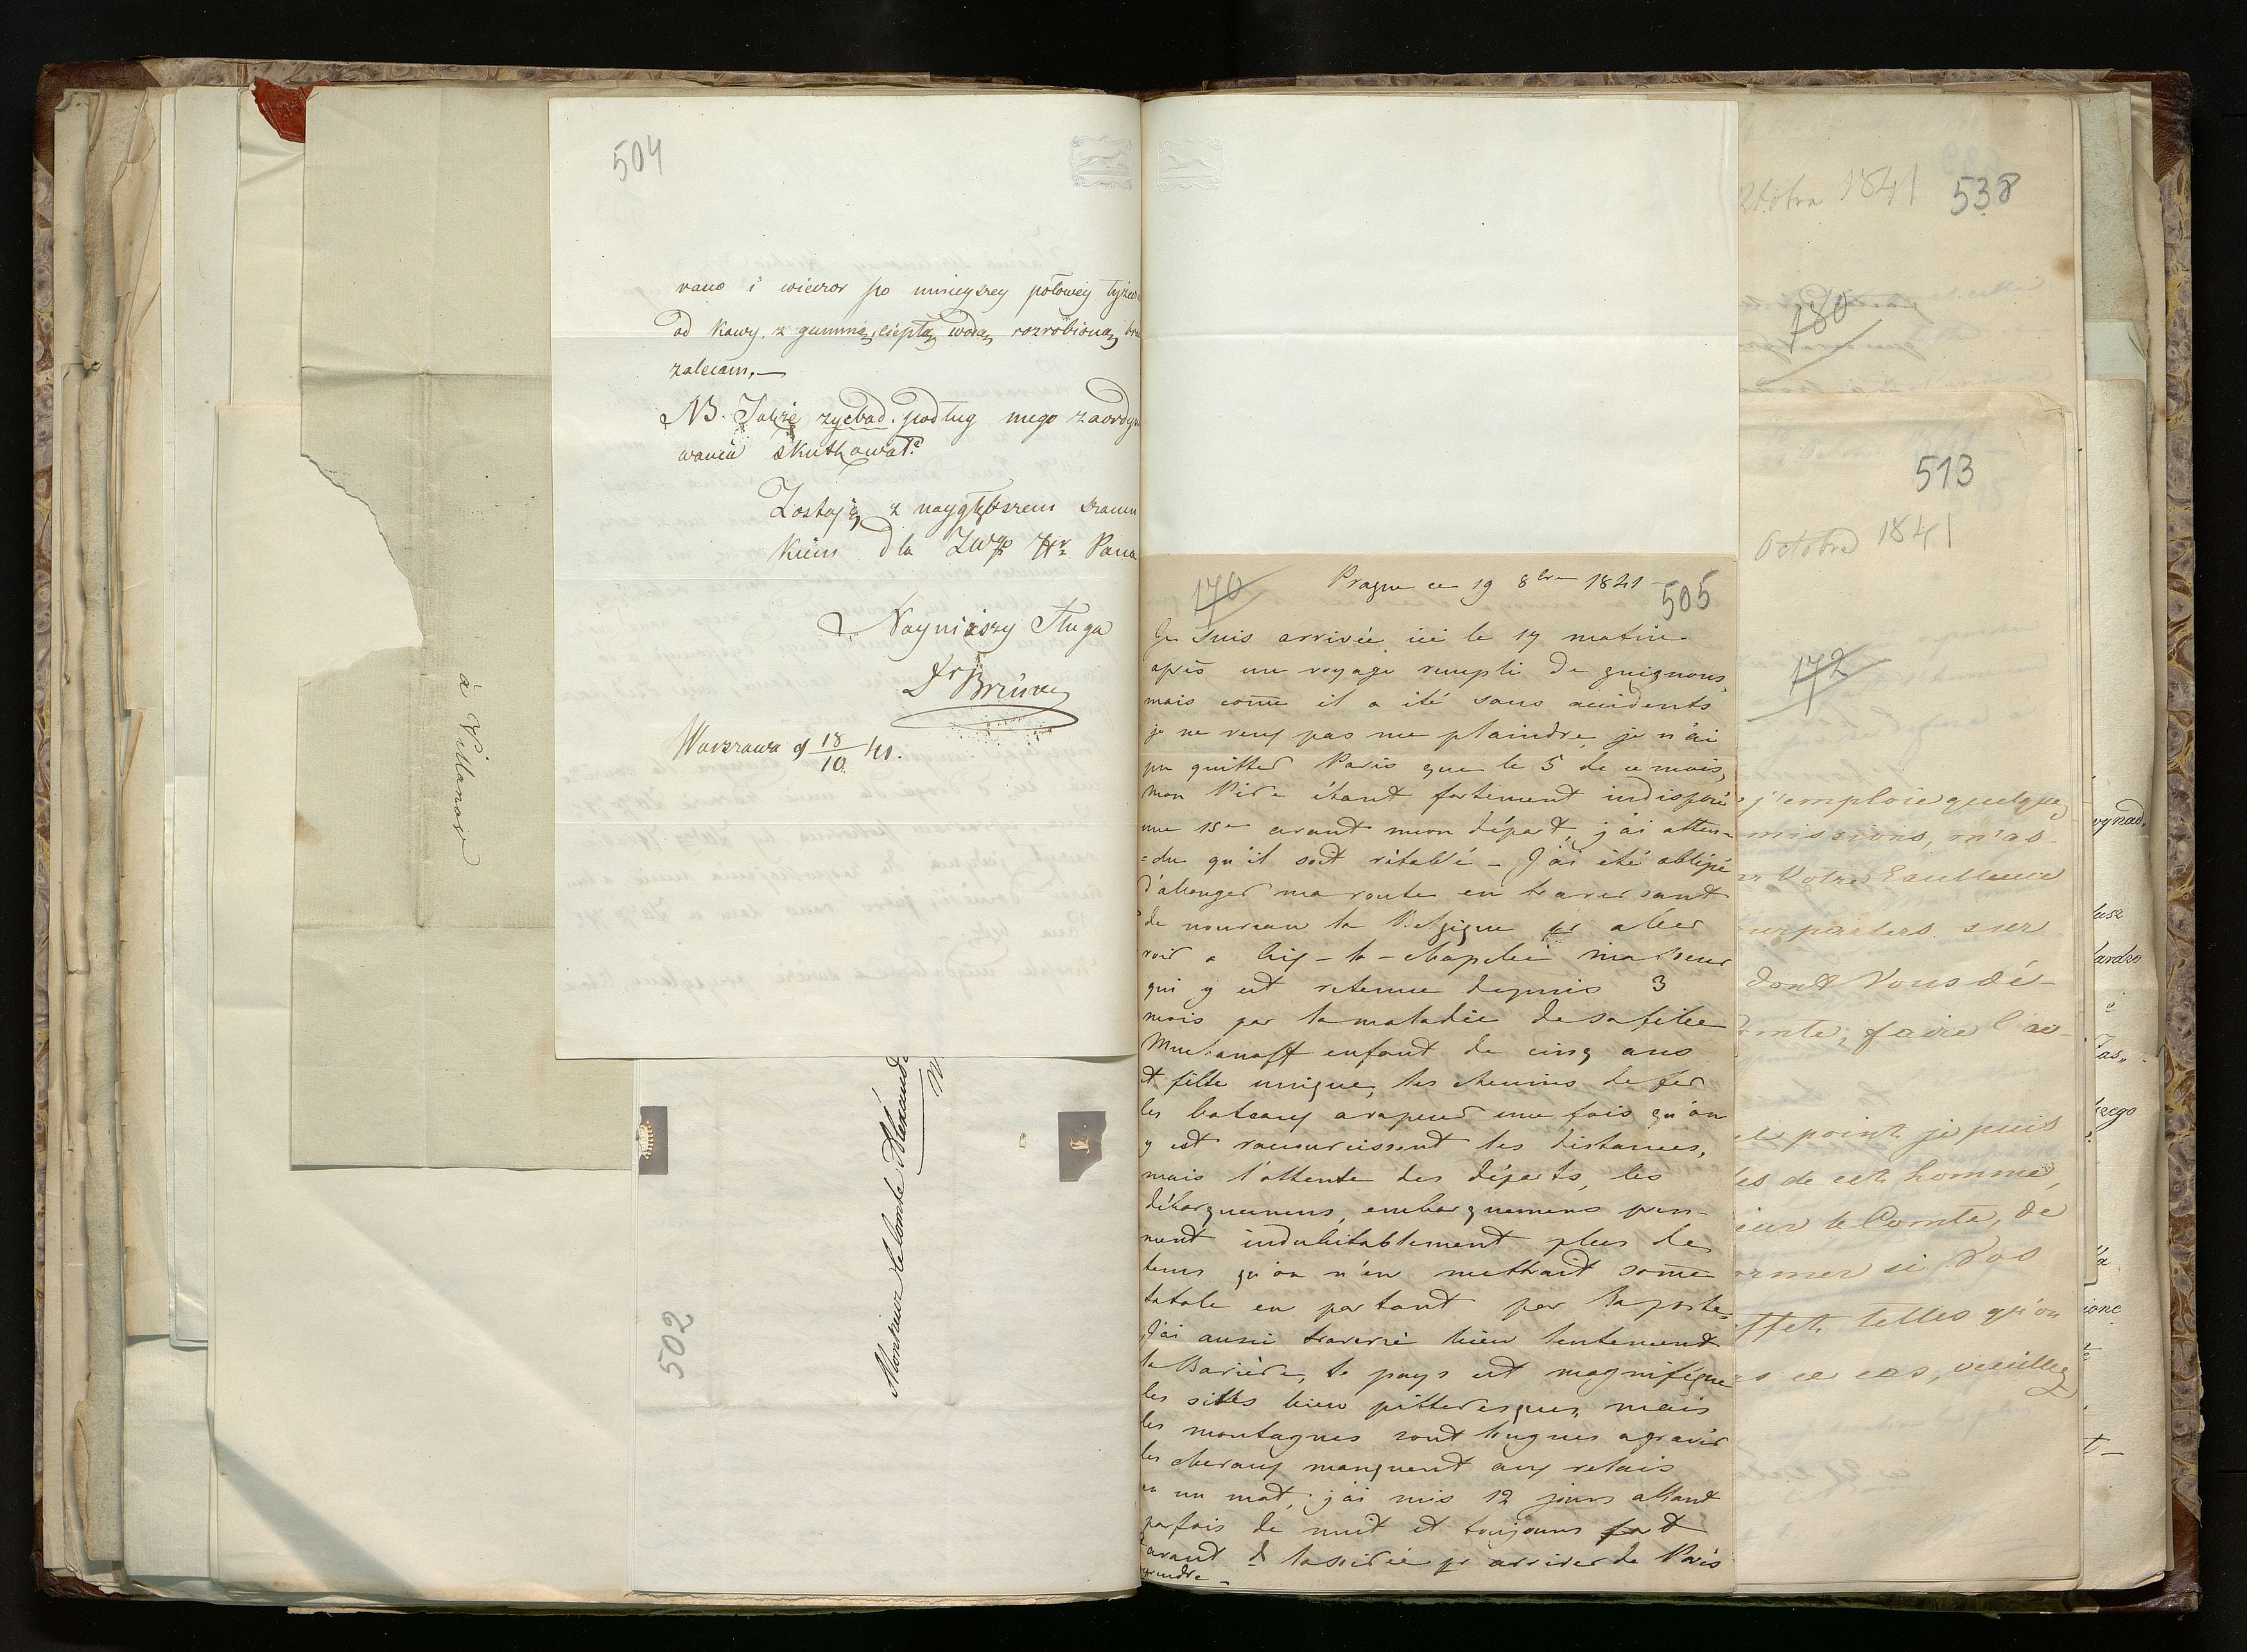 504
rano i wieczor po mnieyszey połowey łyżecz
od Kawy, z gummą, ciepłą wodą rozrobioną
zalecam.—
NB. Także zycbad. podług mego zaordyn
wania skutkował?
Zostaję z naygłębszem szacun
kiem dla JWgo Hr. Pana
Nayniższy Sługa
Dr Brünn
Warszawa d 18/10 41.
à Villanow
Monsieur le Comte Alexandre
502
170
Prague ce 19 8bre 1841
505
Je suis arrivée ici le 17 matin
après un voyage rempli de guignons,
mais come il a été sans accidents
je ne veux pas me plaindre, je n'ai
pu quitter Paris que le 5 de ce mois,
mon Père étant fortement indisposé
une 15ne avant mon départ, j'ai atten-
=du qu'il soit rétabli - J'ai été obligée
d'alonger ma route en traversant
de nouveau la Belgique pr aller
voir a Aix-la-chapelle ma Soeur
qui y est retenue depuis 3
mois par la maladie de sa fille
Muchanoff enfant de cinq ans
et fille unique, les chemins de fer
les bateaux a vapeur une fois qu'on
y est raccourcissent les distances,
mais l'attente des départs, les
débarquemens, embarquemens pren-
nent indubitablement plus de
tems qu'on n'en mettrait some
totale en partant par la poste
J'ai aussi traversé bien lentement
la Bavière, le pays est magnifique
les sites bien pittoresques, mais
les montagnes sont longues a gravir
les chevaux manquent aux relais
en un mot, j'ai mis 12 jours allant
parfois de nuit et toujours fort
avant ds la soirée pr arriver de Paris
538
8tobra 1841
180
513
Octobre 1841
172
j'emploie quelques
missions, m'as-
Votre Excellence
ourparlers sur
dont Vous dé-
omte, faire l'ac
ce point je puis
les de cet homme,
ieur le Comte, de
ormer si Vos
ffet telles qu'on
s ce cas, veuillez
wynad.
lardzo